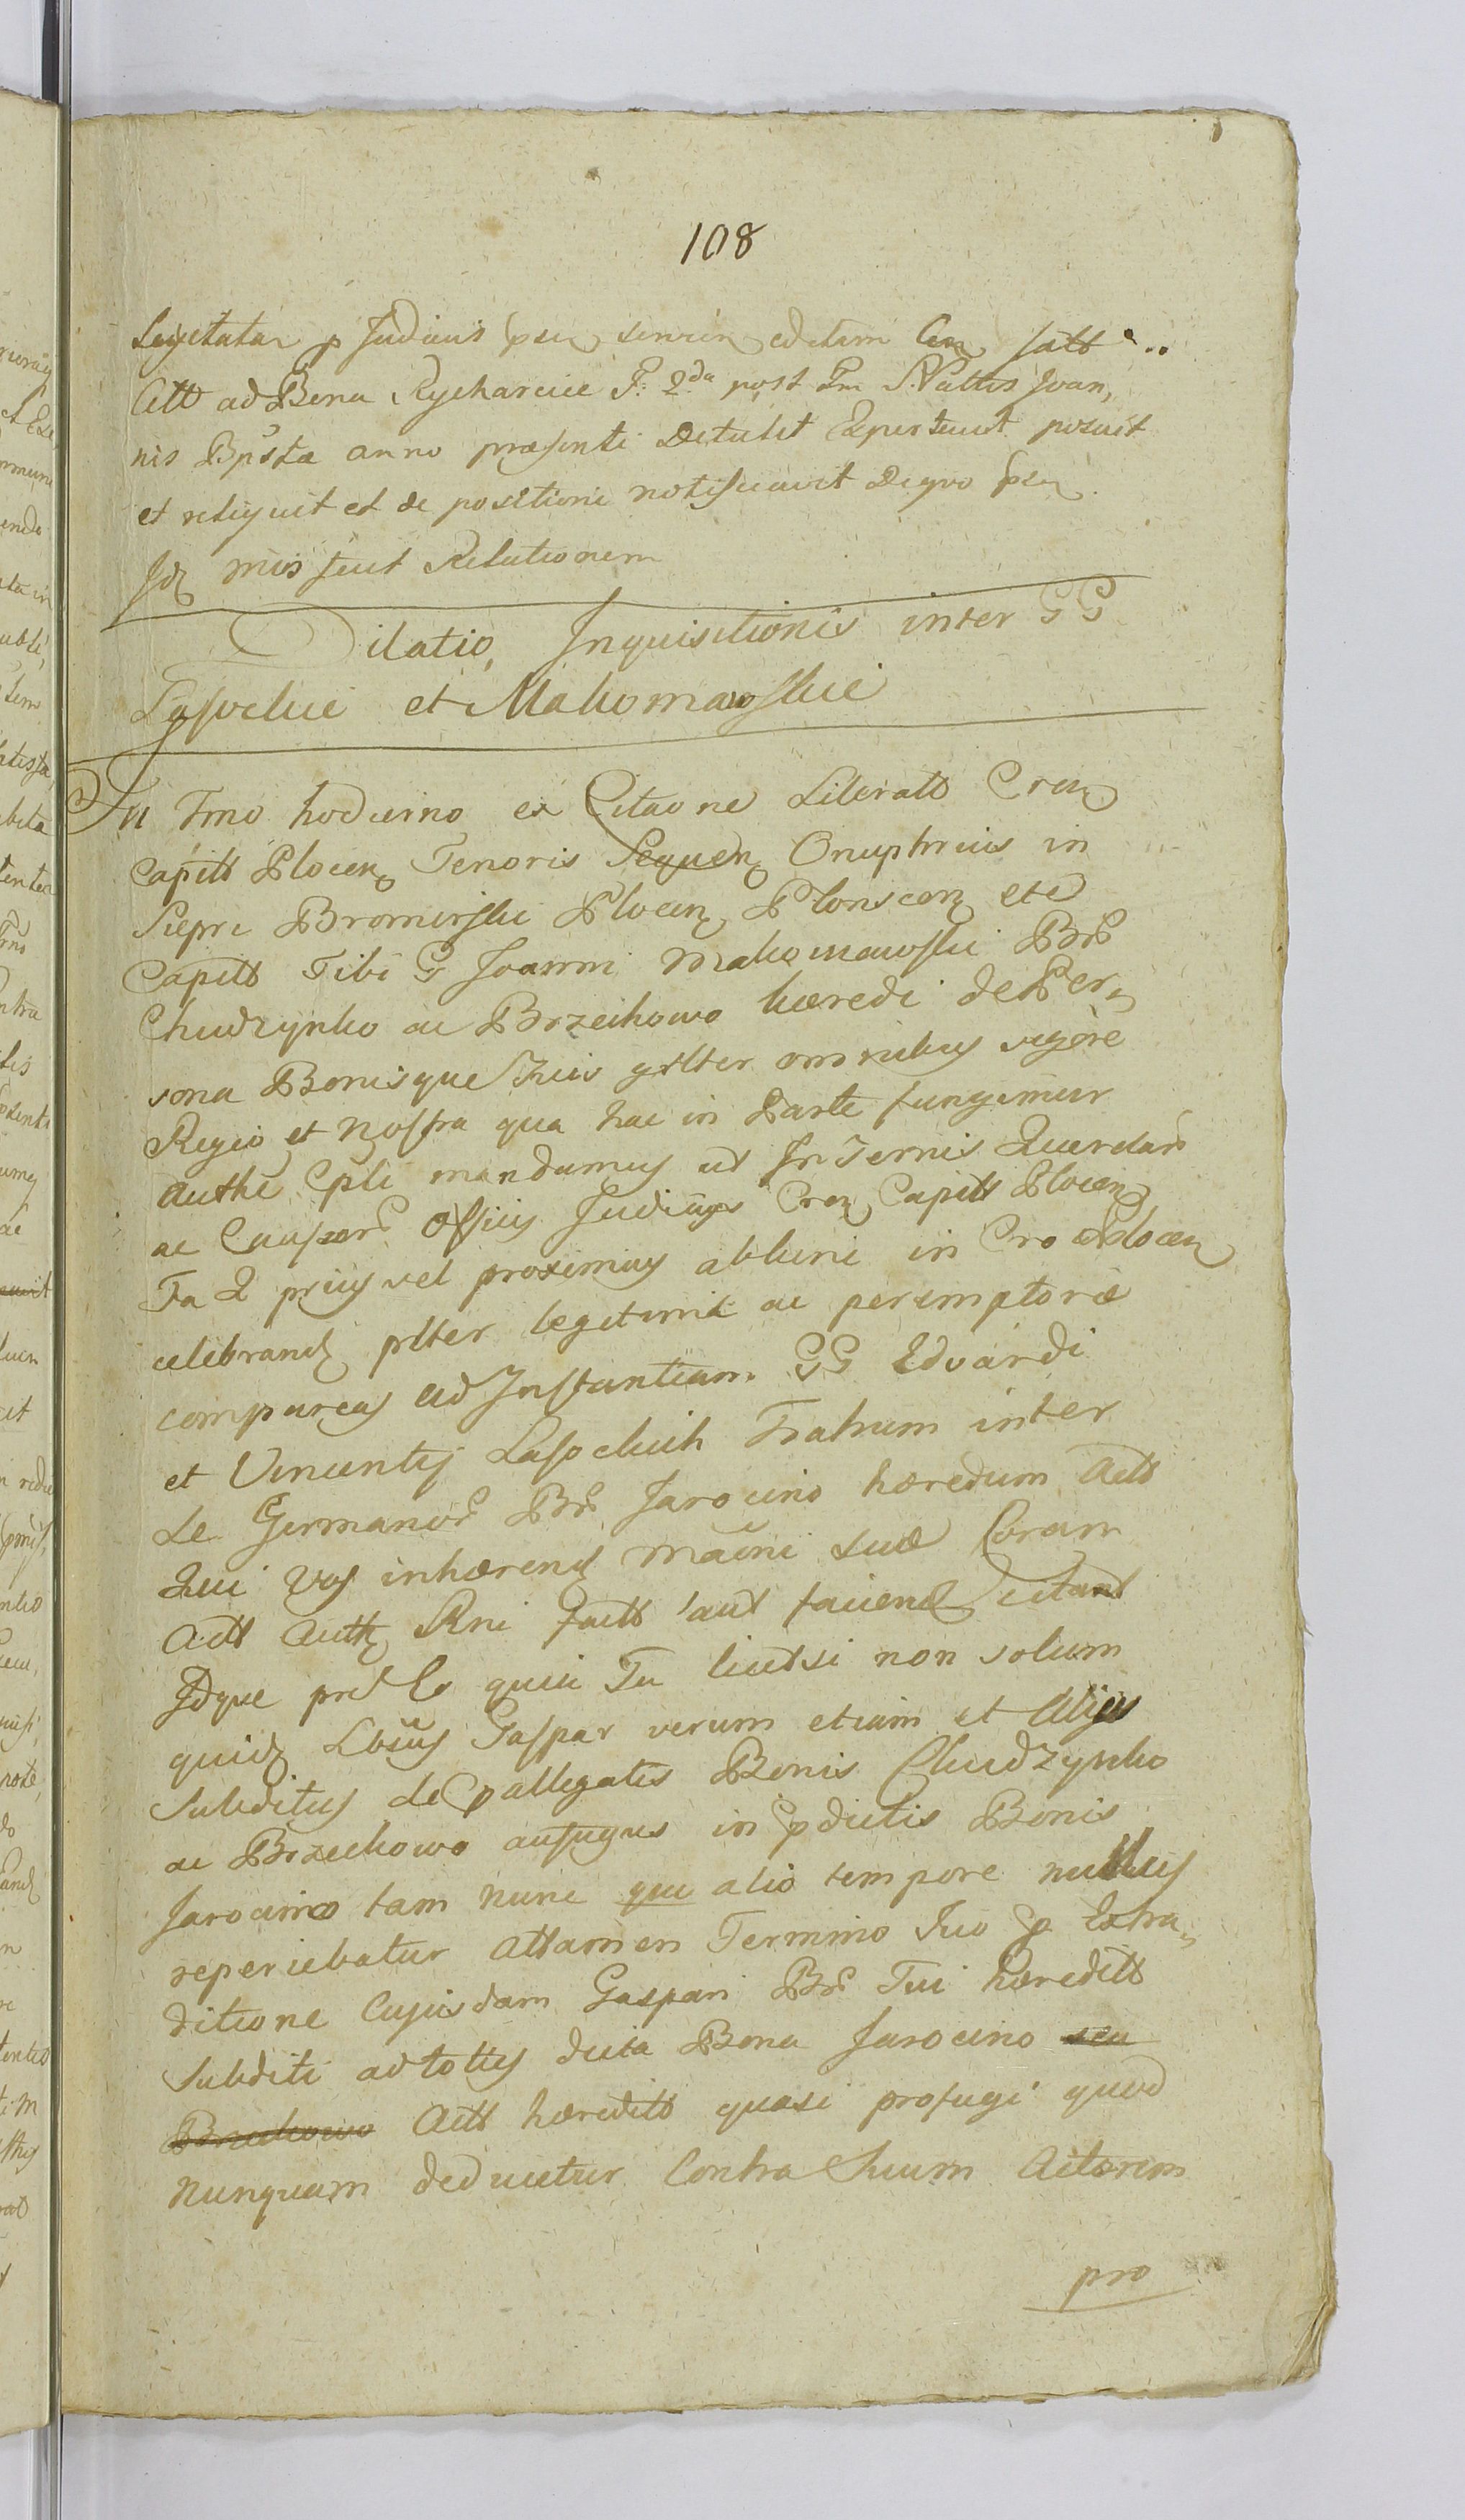 108
p Judicius edetam
Actt ad Bona Rycharcice F: 2da post Fm S. Nattis Joan,
nis Bpstæ anno præsenti Detulit posuit
et reliquit et de positione notificavit De quo
missent Relationem
Dilatio, Inquisitionis inter GG
Lasockie et Makomaskie
In Tmo hodierno ex Citaone Literatt Cren
Capitt Plocen Tenoris Sequen Onuphrius in
Siepre Bromirski Plocen Plonscen etc
Capitt Tibi G Joanni Makomawski Brr
Chudzynko ac Brzechowo hæredi de Per,
sona Bonisque Tuis gnlter omnibus vigore
Regio et Nostra qua hac in Parte fungimur
Authe Cpli mandamus ut In Ternis Querelarr
ac Causarr Officys Judicijs Cren Capitt Plocen
Fa 2 prius vel proximius abhinc in Cro Plocen
celebrand plter legitime ac peremptorie
compareas ad Instantiam GG Edvardi
et Vincentij Lasockich Fratrum inter
se Germanorr Brr Jarocino hæredum Actt
Qui Vos inhærend Maoni suæ Coram
Actt Autt Rni factt aut faciend citant
Idque pro Eo quia Tu licetsi non solum
quid Lbius Gaspar verum etiam et Alijus
Subditus de pallegatis Bonis Chudzynko
ac Brzechowo aufugus in pdictis Bonis
Jarocino tam nunc qu alio tempore nullus
reperiebatur Attamen Termino Tuo p Extra,
ditione Cujusdam Gaspari Brr Tui hæreditt
Subditi ad totius dicta Bona Jarocino seu
Brzechowo Actt hæreditt quasi profugi quod
nunquam deducetur Contra Suum Actorem
pro